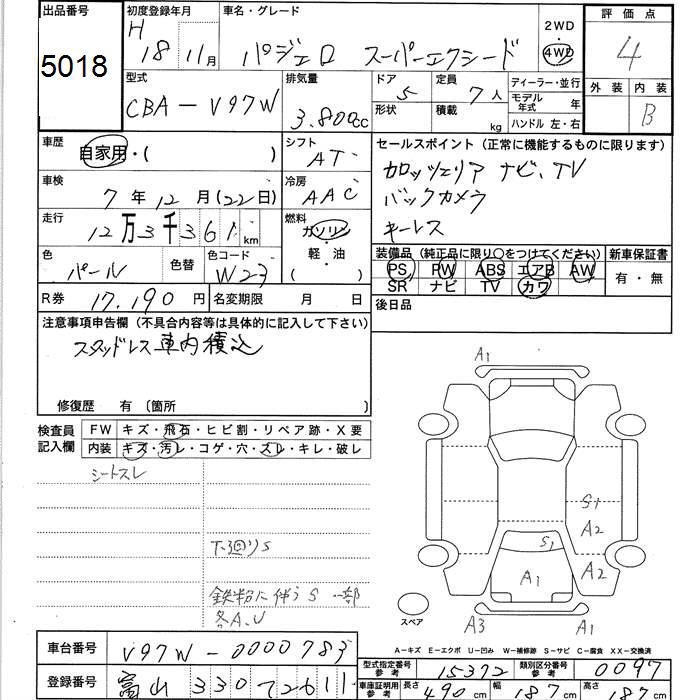 出品番号 初度登録年月 車名・グレード 2WD 評価点
5018 H 18 11月 パジェロ スーパーエクシード ・4WD 4
型式 排気量 ドア 定員 ディーラー・並行 外装 内装
CBA-V97W 3.800cc 5 7人 モデル年式 年 B
形状 積載 kg ハンドル 左・右
車歴 自家用・( ) シフト AT セールスポイント (正常に機能するものに限ります)
車検 7年12月(22日) 冷房 AAC カロッツェリア ナビ、TV
バックカメラ
走行 12万3千361km 燃料 ガソリン・軽油 ( ) キーレス
色 パール 色替 色コード W23 装備品 (純正品に限り○をつけてください) 新車保証書
PS PW ABS エアB AW 有・無
R券 17,190円 名変期限 月 日 SR ナビ TV カワ
後日品
注意事項申告欄 (不具合内容等は具体的に記入して下さい)
スタッドレス車内積込
修復歴 有 〔箇所 〕
検査員記入欄 FW キズ・飛石・ヒビ割・リペア跡・X要
内装 キズ・汚レ・コゲ・穴・スレ・キレ・破レ
シートスレ
下廻りS
鉄部に伴うS 一部
各A.U
A1
S1
A2
S1
A1 A2
スペア A3 A1
A-キズ E-エクボ U-凹ミ W-補修跡 S-サビ C-腐食 XX-交換済
車台番号 V97W-0000783 型式指定番号 参考 15372 類別区分番号 参考 0097
登録番号 富山 330 72611 車庫証明用 参考 長さ 490cm 幅 187cm 高さ 187cm